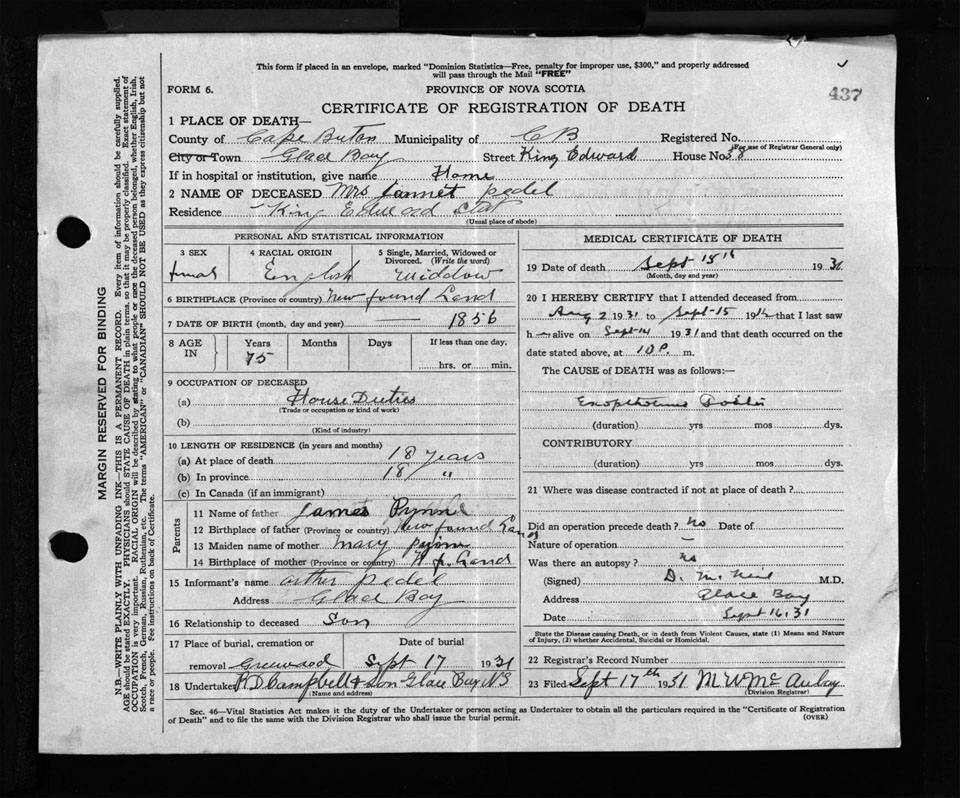 This form if placed in an envelope, marked "Dominion Statistics—Free, penalty for improper use, $300," and properly addressed
will pass through the Mail "FREE"
FORM 6.
PROVINCE OF NOVA SCOTIA
437
CERTIFICATE OF REGISTRATION OF DEATH
1 PLACE OF DEATH—
County of Cape Breton Municipality of C B Registered No.
(For use of Registrar General only)
City or Town Glace Bay Street King Edward House No. 38
If in hospital or institution, give name Home
2 NAME OF DECEASED Mrs Jannet pedel
Residence King Edward Stat
(Usual place of abode)
PERSONAL AND STATISTICAL INFORMATION
3 SEX 4 RACIAL ORIGIN 5 Single, Married, Widowed or
Divorced. (Write the word)
English Widdow
6 BIRTHPLACE (Province or country) New found Land
7 DATE OF BIRTH (month, day and year) 1856
8 AGE IN Years Months Days If less than one day,
75 hrs. or min.
9 OCCUPATION OF DECEASED
(a) House Duties
(Trade or occupation or kind of work)
(b)
(Kind of industry)
10 LENGTH OF RESIDENCE (in years and months)
(a) At place of death 18 years
(b) In province 18 "
(c) In Canada (if an immigrant)
Parents
11 Name of father James Pynne
12 Birthplace of father (Province or country) New found Land
13 Maiden name of mother Mary
14 Birthplace of mother (Province or country) N f. Land
15 Informant's name arther pedel
Address Glace Bay
16 Relationship to deceased Son
17 Place of burial, cremation or Date of burial
removal Greenwood Sept 17 1931
18 Undertaker R D Campbell & Son Glace Bay NS
(Name and address)
MEDICAL CERTIFICATE OF DEATH
19 Date of death Sept 15th 1931
(Month, day and year)
20 I HEREBY CERTIFY that I attended deceased from
Aug 2 1931 to Sept-15 19 that I last saw
h alive on Sept-14 1931 and that death occurred on
the date stated above, at 10 P. m.
The CAUSE of DEATH was as follows:—
(duration) yrs mos dys.
CONTRIBUTORY
(duration) yrs mos dys.
21 Where was disease contracted if not at place of death?
Did an operation precede death? No Date of
Nature of operation —
Was there an autopsy? No
(Signed) D. McNeil M.D.
Address Glace Bay
Date Sept 16, 31
State the Disease causing Death, or in death from Violent Causes, state (1) Means and Nature
of Injury, (2) whether Accidental, Suicidal or Homicidal.
22 Registrar's Record Number
23 Filed Sept 17th 1931 M W McAulay
(Division Registrar)
Sec. 46—Vital Statistics Act makes it the duty of the Undertaker or person acting as Undertaker to obtain all the particulars required in the "Certificate of Registration
of Death" and to file the same with the Division Registrar who shall issue the burial permit.
(OVER)
MARGIN RESERVED FOR BINDING
N.B.—WRITE PLAINLY WITH UNFADING INK—THIS IS A PERMANENT RECORD. Every item of information should be carefully supplied.
AGE should be stated EXACTLY. PHYSICIANS should STATE CAUSE OF DEATH in plain terms, so that it may be properly classified. Exact statement of
OCCUPATION is very important. RACIAL ORIGIN will be described by stating to what people or race the deceased person belonged, whether English, Irish,
Scotch, French, German, Russian, Ruthenian, etc. The terms "AMERICAN" or "CANADIAN" SHOULD NOT BE USED as they express citizenship but not
a race or people. See instructions on back of Certificate.